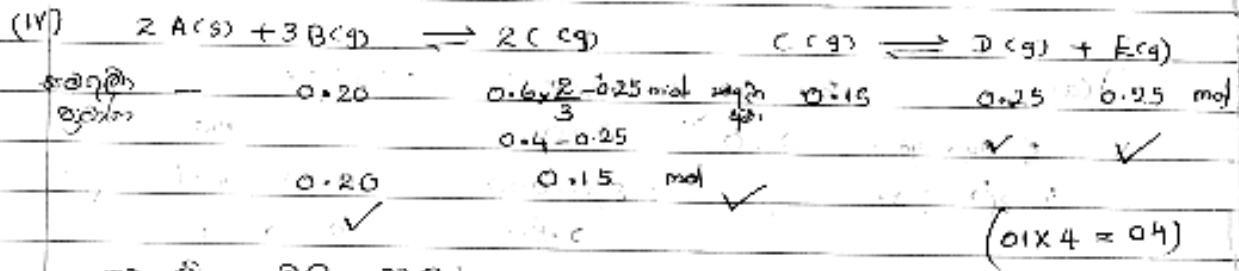 (IV) 2 A(s) + 3 B(g) ⇌ 2 C (g) C (g) ⇌ D (g) + E(g)
— 0.20 0.6×2/3 - 0.25 mol 0.15 0.25 0.25 mol
0.4 - 0.25 ✓ ✓
0.20 0.15 mol ✓
✓ (01 × 4 = 04)